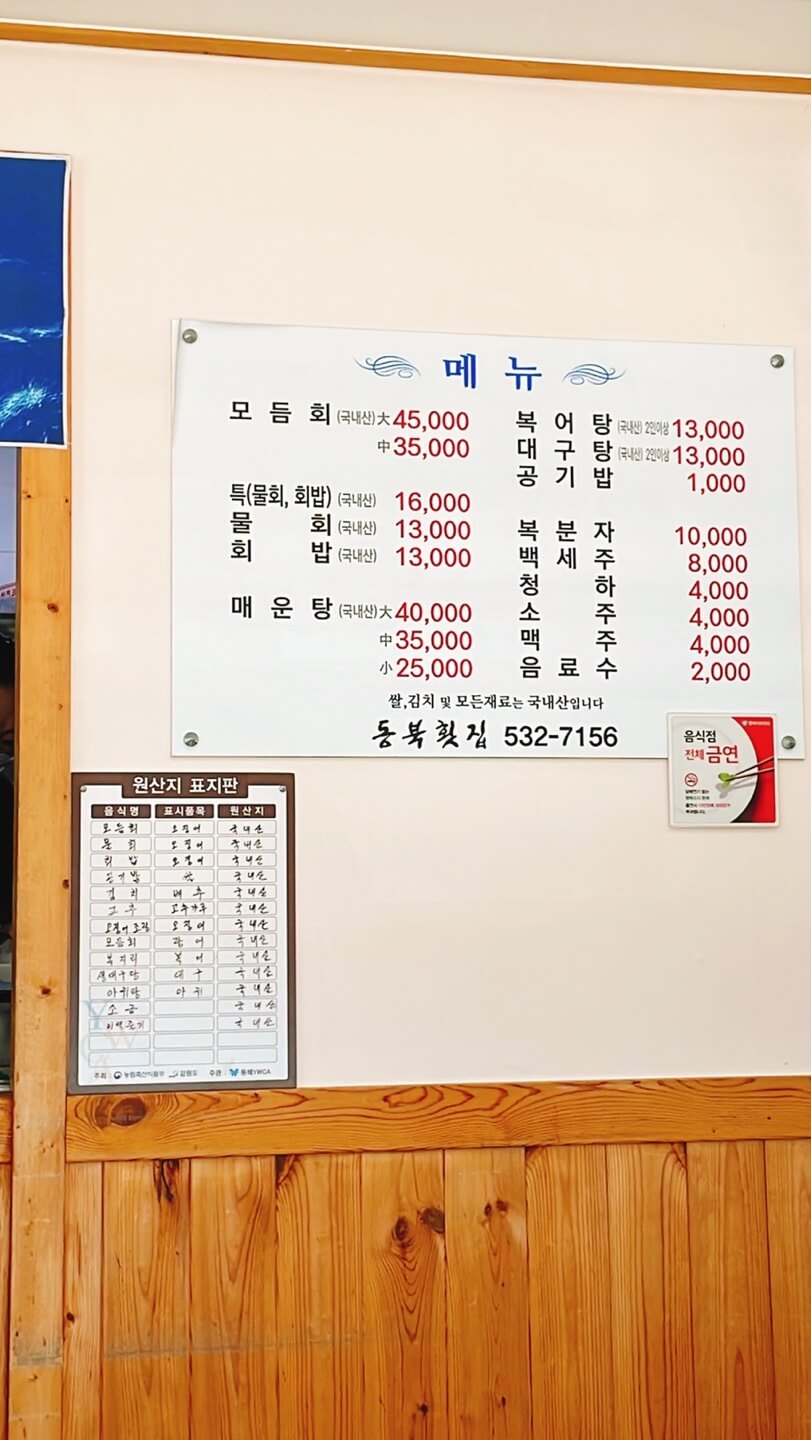 메 뉴
모 듬 회 (국내산) 大 45,000
中 35,000
특(물회, 회밥) (국내산) 16,000
물 회 (국내산) 13,000
회 밥 (국내산) 13,000
매 운 탕 (국내산) 大 40,000
中 35,000
小 25,000
복 어 탕 (국내산) 2인이상 13,000
대 구 탕 (국내산) 2인이상 13,000
공 기 밥 1,000
복 분 자 10,000
백 세 주 8,000
청 하 4,000
소 주 4,000
맥 주 4,000
음 료 수 2,000
쌀,김치 및 모든재료는 국내산입니다
동북횟집 532-7156
음식점
전체 금연
원산지 표지판
음식명 표시품목 원산지
모듬회 오징어 국내산
물 회 오징어 국내산
회 밥 오징어 국내산
공기밥 쌀 국내산
김 치 배 추 국내산
고 추 고추가루 국내산
오징어 국내산
모듬회 광 어 국내산
복지리 복 어 국내산
생대구탕 대 구 국내산
아귀탕 아 귀 국내산
소 금 국내산
국내산
주최 : 농림축산식품부 강원도 주관 : 동해YWCA